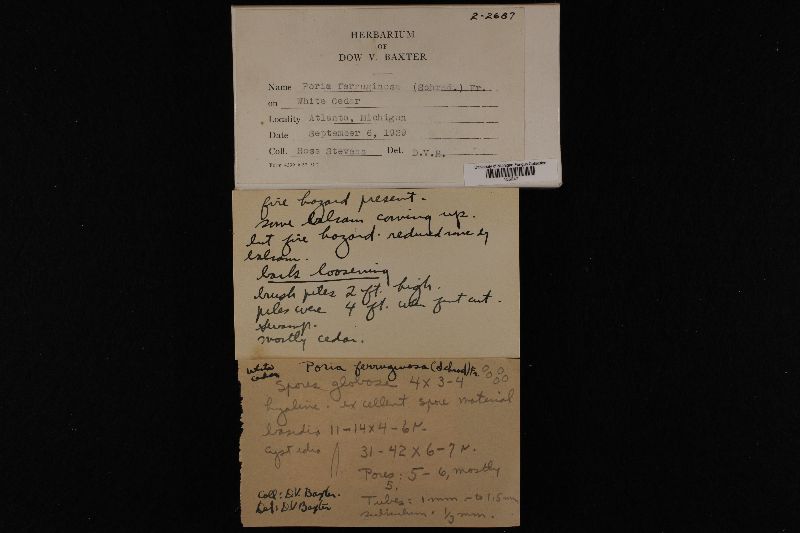 2-2687
HERBARIUM
OF
DOW V. BAXTER
Name Poria ferruginosa (Schrad.) Fr.
on White Cedar
Locality Atlanta, Michigan
Date September 6, 1929
Coll. Ross Stevens Det. D.V.B.
fire hazard present.
some balsam coming up.
but fire hazard reduced some by
balsam.
bark loosening
brush piles 2 ft. high.
piles were 4 ft. when first cut.
swamp.
mostly cedar.
White cedar
Poria ferruginosa (Schrad) Fr.
Spores globose 4 x 3-4
hyaline. excellent spore material
basidia 11-14 x 4-6 µ.
cystidia 31-42 x 6-7 µ.
Pores: 5-6, mostly
5.
Tubes: 1 mm - to 1.5 mm
subiculum. 1/2 mm.
Coll: D.V. Baxter.
Det: D V Baxter